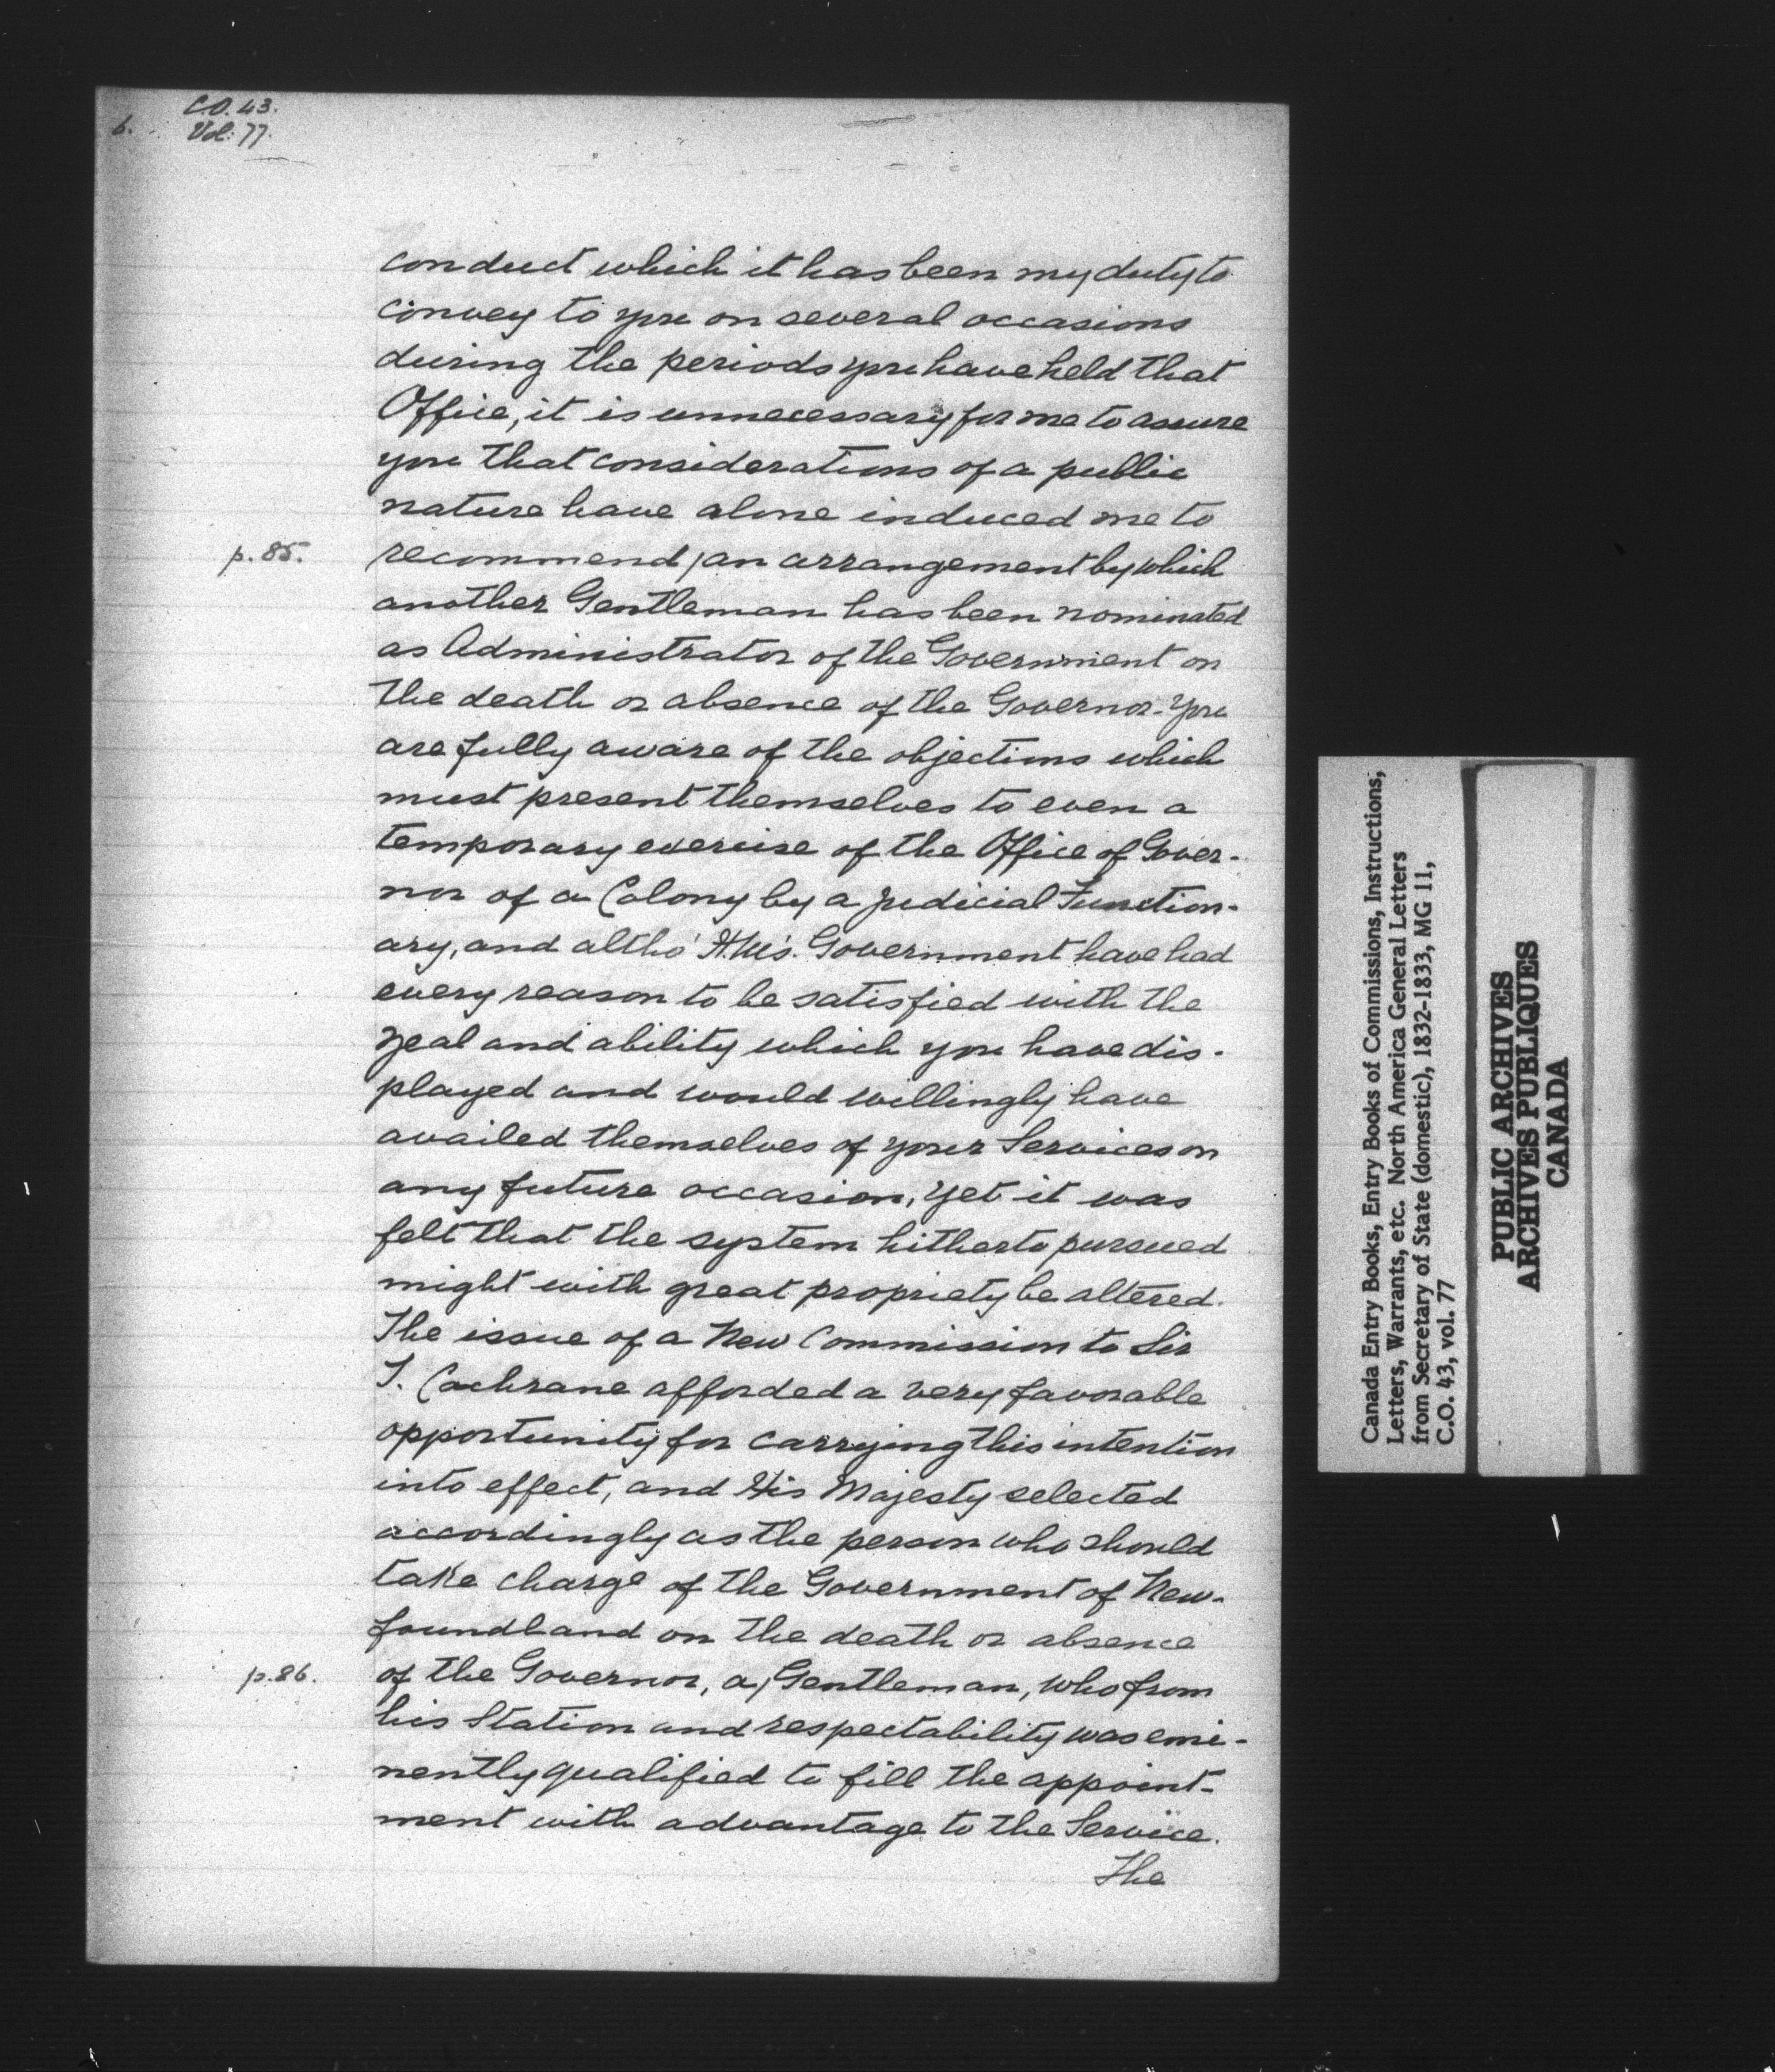 6.
C.O. 43.
Vol: 77.
conduct which it has been my duty to
convey to you on several occasions
during the periods you have held that
Office, it is unnecessary for me to assure
you that considerations of a public
nature have alone induced me to
p. 85.
recommend / an arrangement by which
another Gentleman has been nominated
as Administrator of the Government on
the death or absence of the Governor. You
are fully aware of the objections which
must present themselves to even a
temporary exercise of the Office of Gover-
nor of a Colony by a judicial Function-
ary, and altho' H.M's. Government have had
every reason to be satisfied with the
zeal and ability which you have dis-
played and would willingly have
availed themselves of your Services on
any future occasion, yet it was
felt that the system hitherto pursued
might with great propriety be altered.
The issue of a New Commission to Sir
T. Cochrane afforded a very favorable
opportunity for carrying this intention
into effect, and His Majesty selected
accordingly as the person who should
take charge of the Government of New-
foundland on the death or absence
p. 86.
of the Governor, a / Gentleman, who from
his Station and respectability was emi-
nently qualified to fill the appoint-
ment with advantage to the Service.
The
Canada Entry Books, Entry Books of Commissions, Instructions,
Letters, Warrants, etc. North America General Letters
from Secretary of State (domestic), 1832-1833, MG 11,
C.O. 43, vol. 77
PUBLIC ARCHIVES
ARCHIVES PUBLIQUES
CANADA